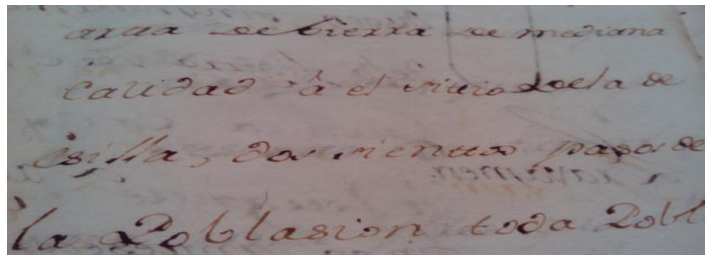 arga de tierra de mediana
calidad â el sitio de la de
esilla, dos cientos pasos de
la Poblasion toda Pobl